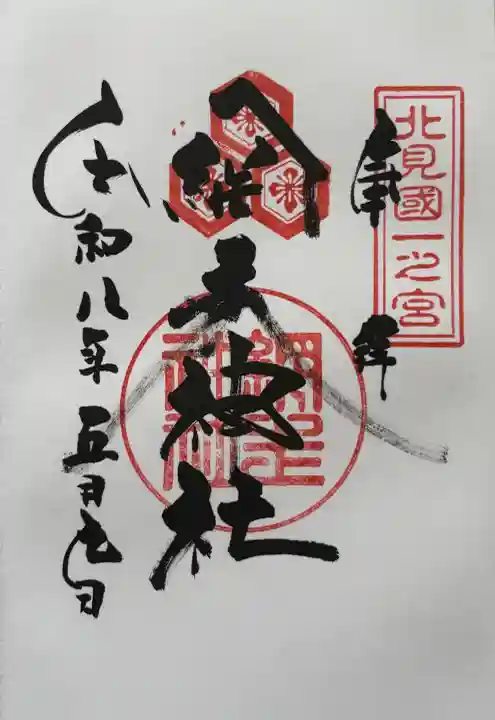 北見國一之宮
奉拝
網走神社
網走神社
令和八年五月九日